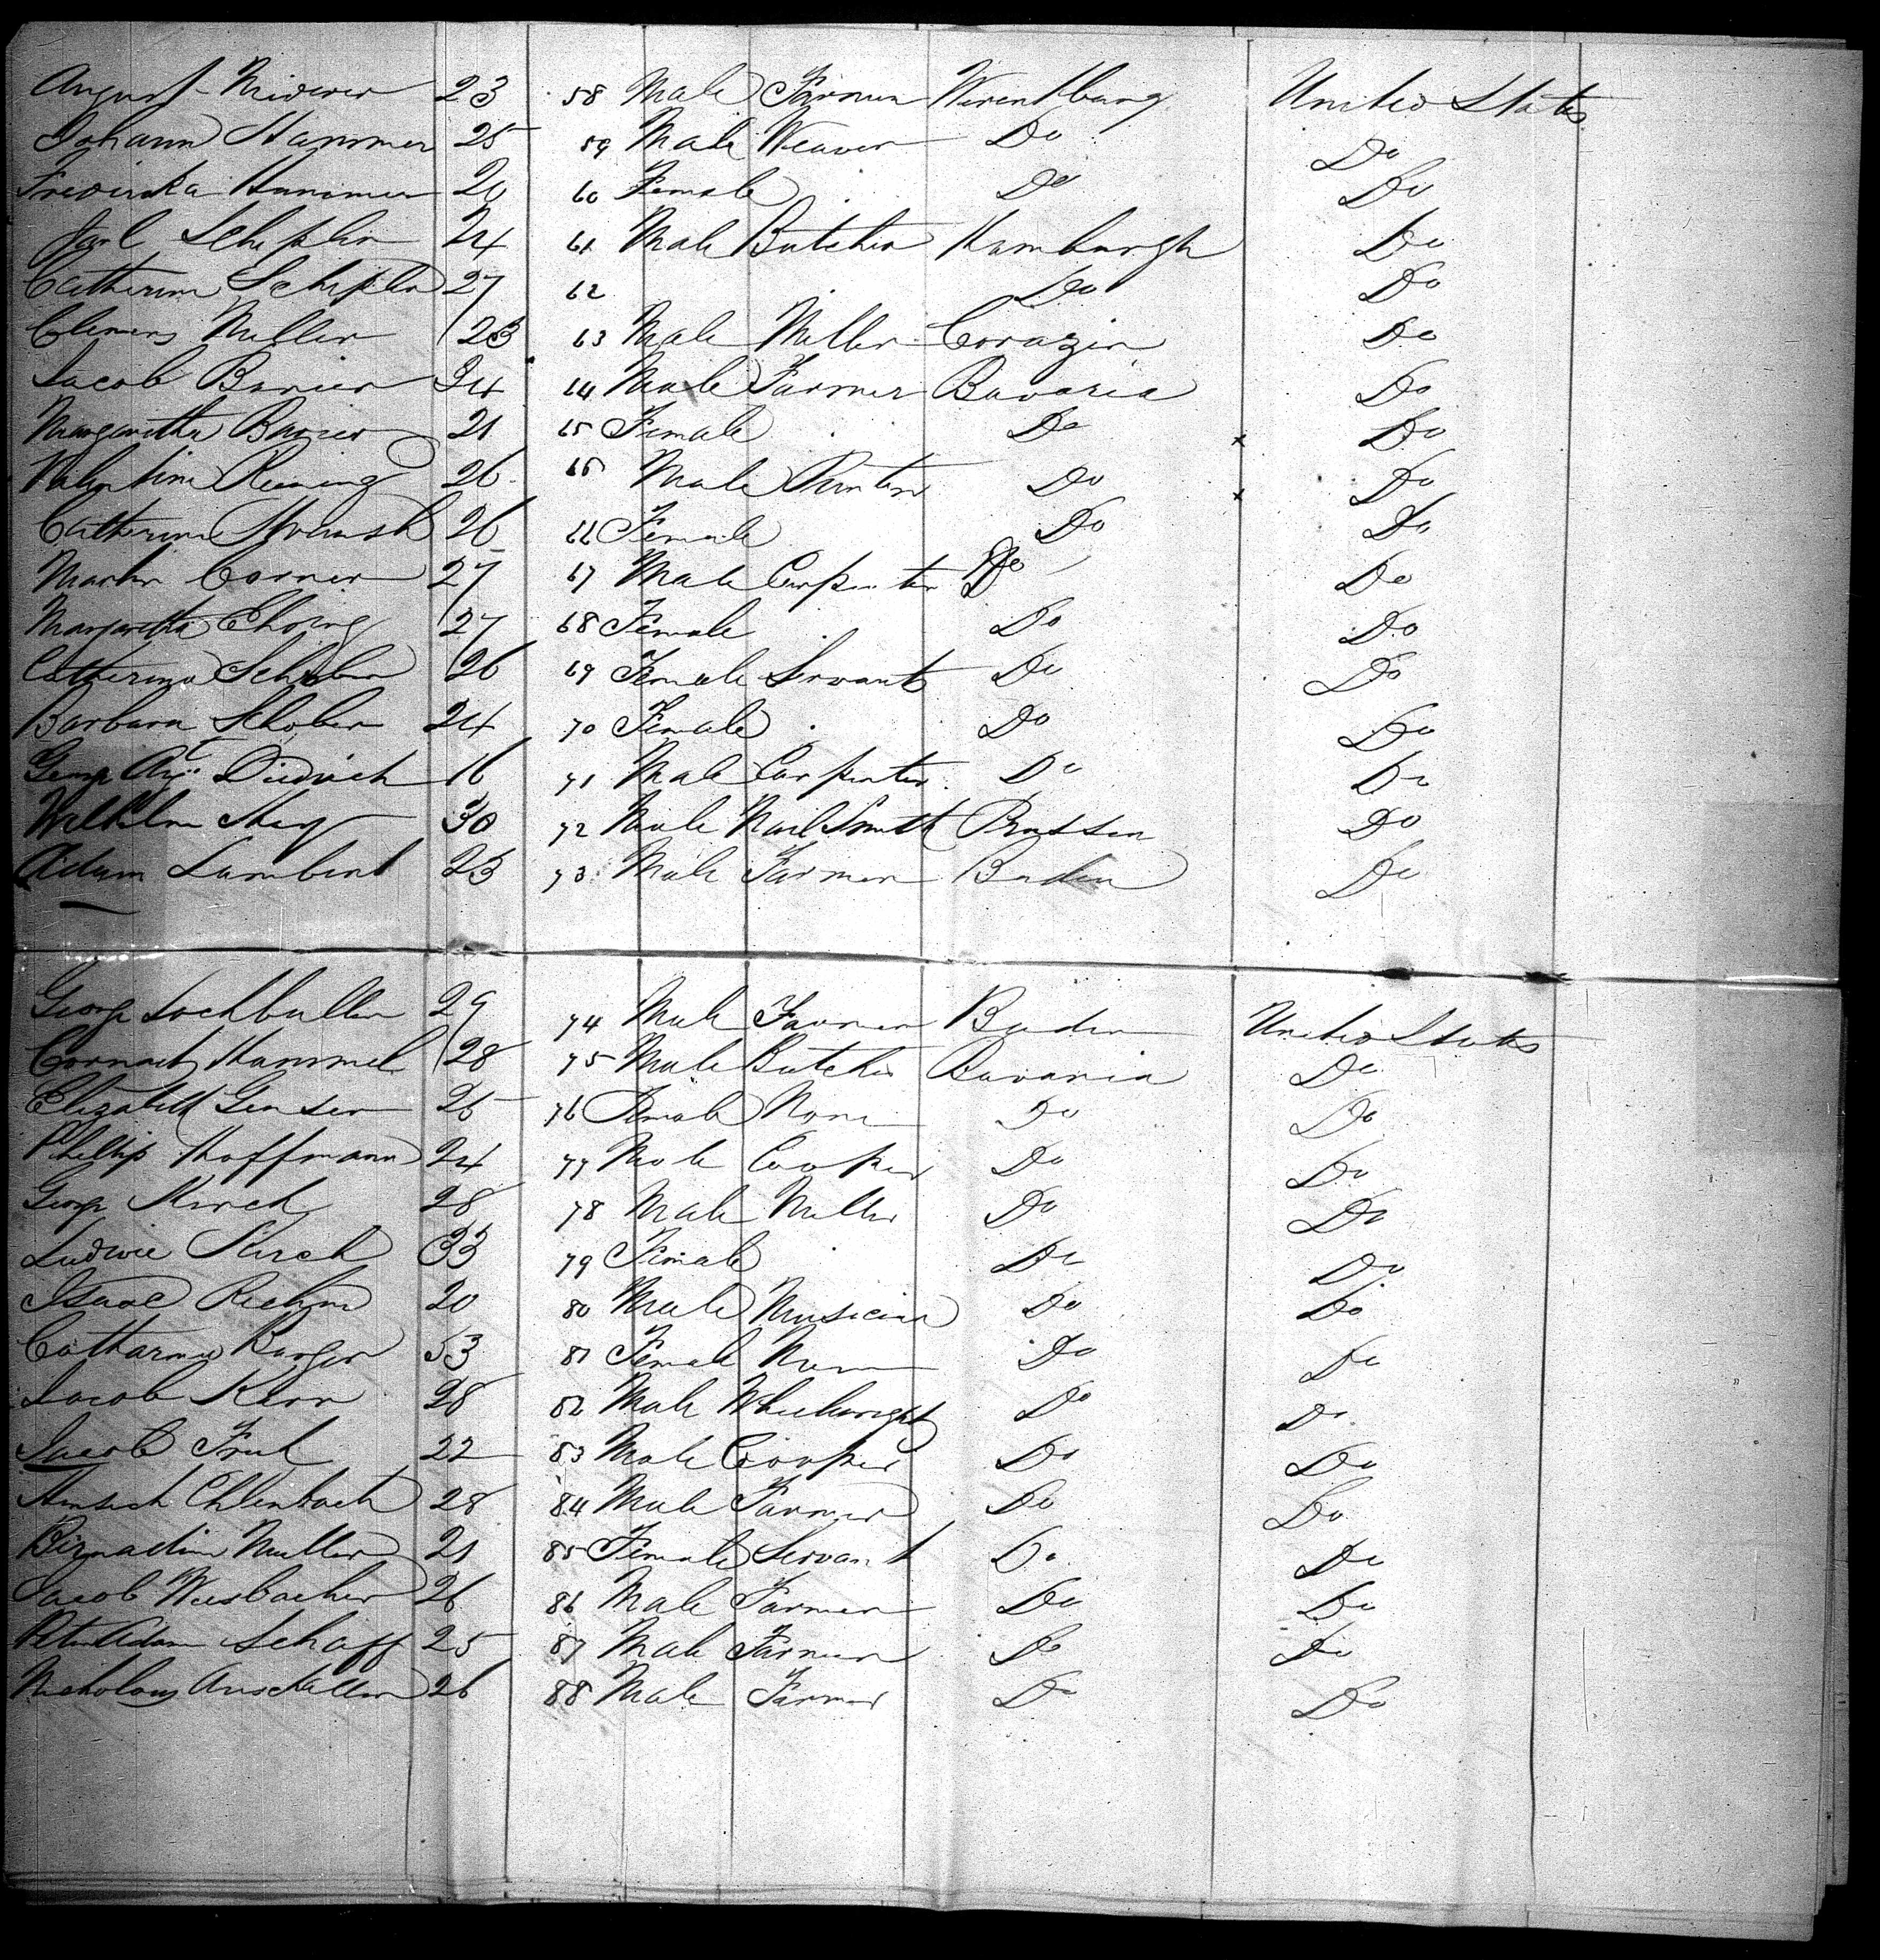 August 23 58 Male Farmer Wirentburg United States
Johann Hammer 25 59 Male Weaver Do Do
Fredirika Hammer 20 60 Female Do Do
Carl Scheplin 24 61 Male Butcher Hamburgh Do
Catherine 27 62 Do Do
Clemens Miller 23 63 Male Miller Do
Jacob Barier 34 64 Male Farmer Bavaria Do
Margaretha Barier 21 65 Female Do Do
Valentine Reising 26 66 Male Do Do
Catherine 26 66 Female Do Do
Martin Corner 27 67 Male Carpenter Do Do
Margaretha 27 68 Female Do Do
Catherina Schober 26 69 Female Servant Do Do
Barbara Schober 24 70 Female Do Do
George Diedrich 16 71 Male Carpenter Do Do
Wilhelm 30 72 Male Nail Smith Prussia Do
Adam Lambert 23 73 Male Farmer Baden Do
George Lochbuller 29 74 Male Farmer Baden United States
Hammel 28 75 Male Butcher Bavaria Do
Elizabeth Genser 26 76 Female None Do Do
Phillip Hoffmann 24 77 Male Cooper Do Do
George Kirch 28 78 Male Miller Do Do
Kirch 33 79 Female Do Do
Isaac Riehm 20 80 Male Musician Do Do
Catharina Burger 53 81 Female None Do Do
Jacob Kern 28 82 Male Wheelwright Do Do
Jacob 22 83 Male Cooper Do Do
Ehlenbach 28 84 Male Farmer Do Do
Muller 21 85 Female Servant Do Do
Jacob Weisbacher 26 86 Male Farmer Do Do
Peter Adam Schaff 25 87 Male Farmer Do Do
Nicholaus 26 88 Male Farmer Do Do